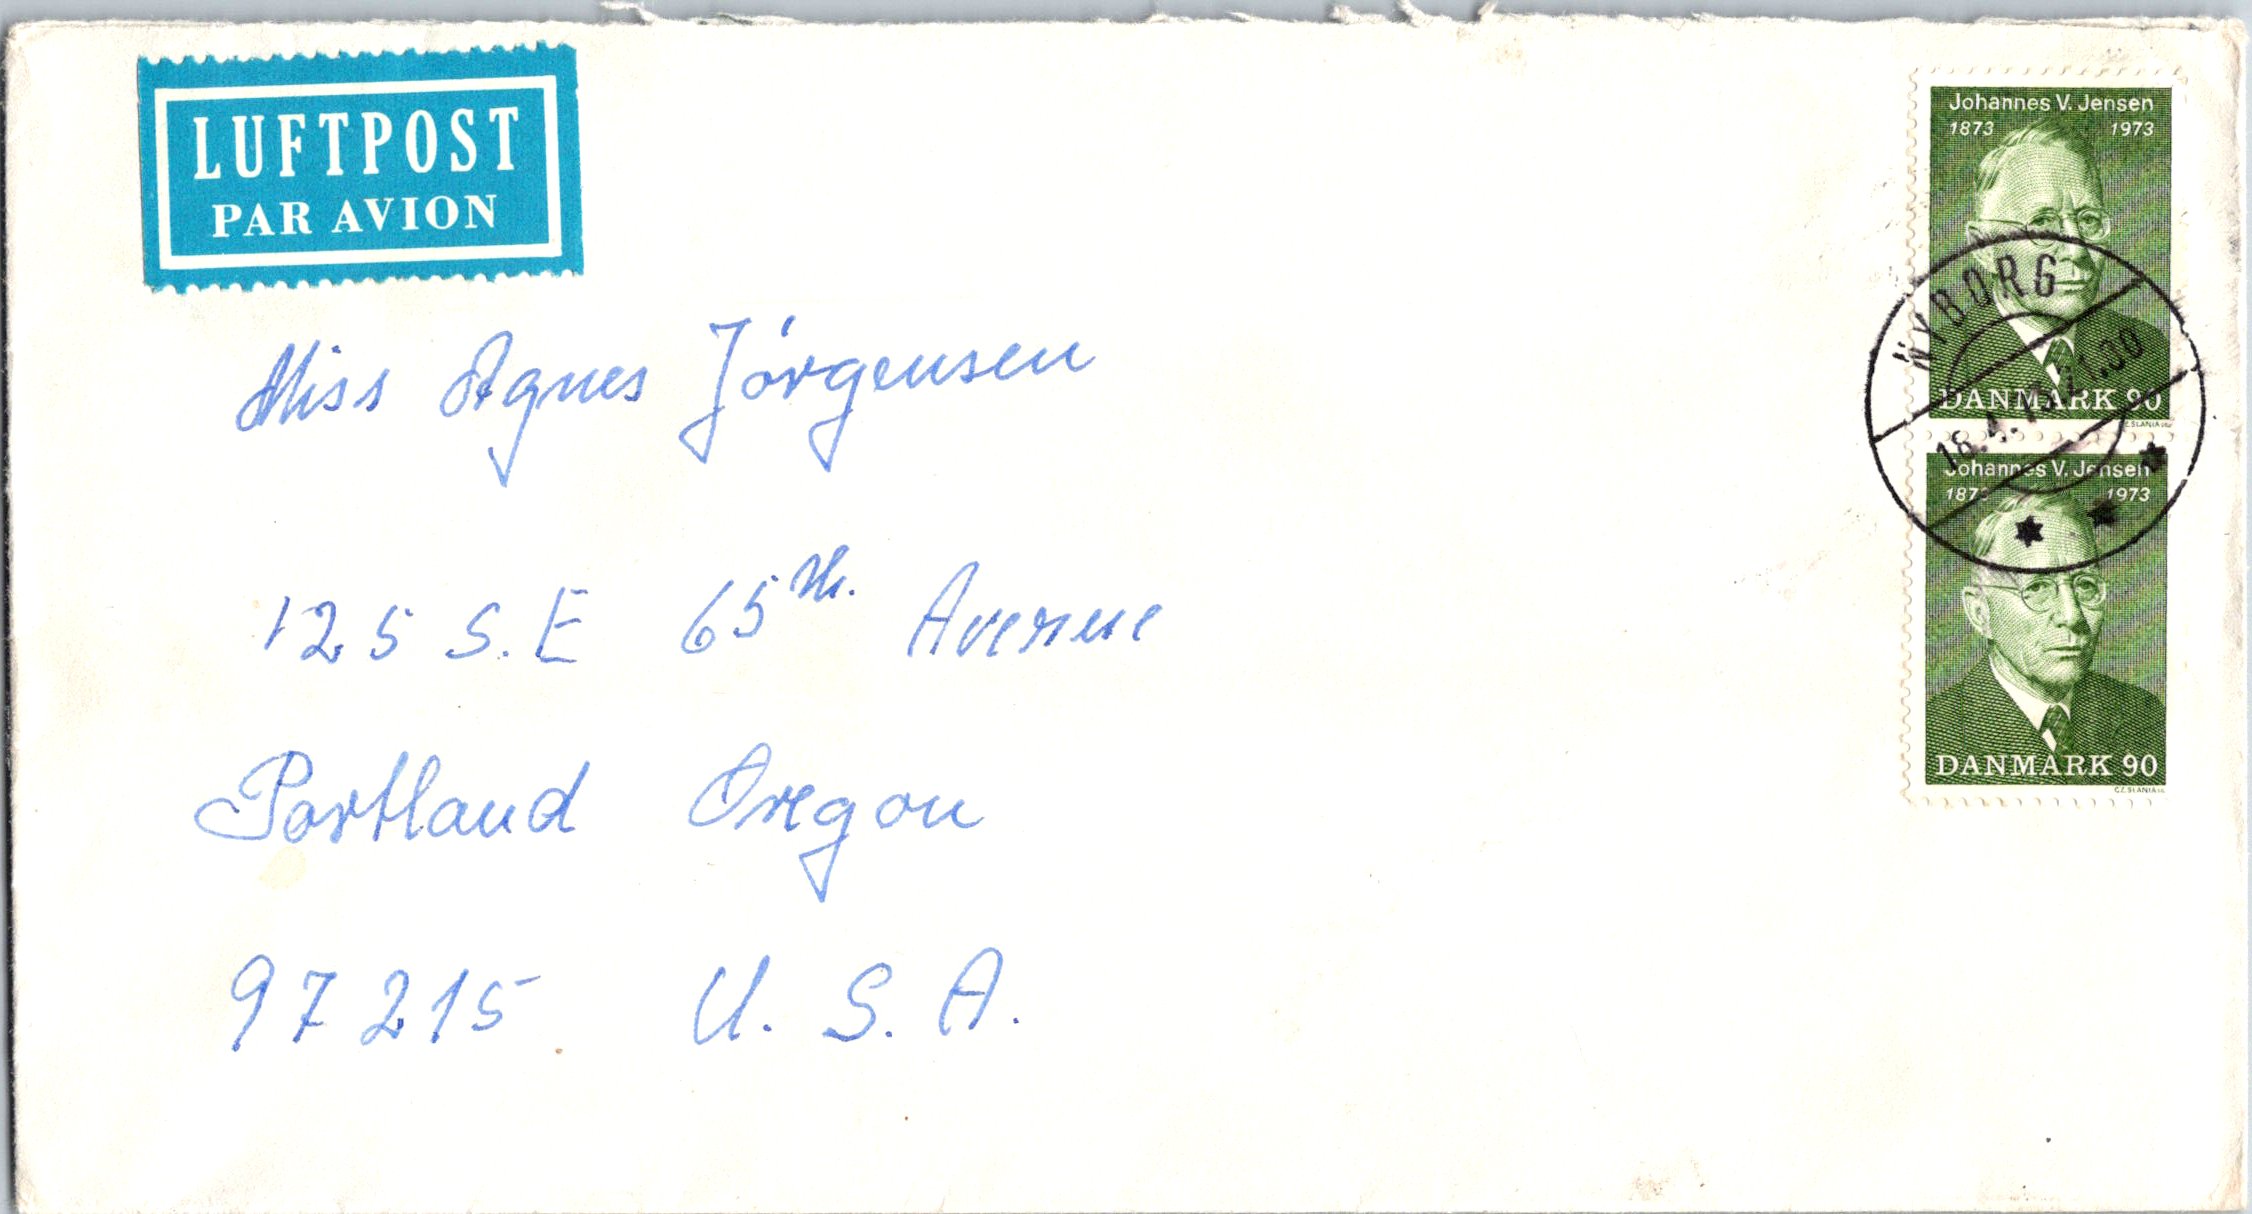 LUFTPOST
PAR AVION
Johannes V. Jensen
1873 1973
DANMARK 90
CZ.SLANIA
NYBORG
Johannes V. Jensen
1873 1973
DANMARK 90
CZ.SLANIA
Miss Agnes Jörgensen
125 S.E 65th. Avenue
Portland Oregon
97215 U.S.A.